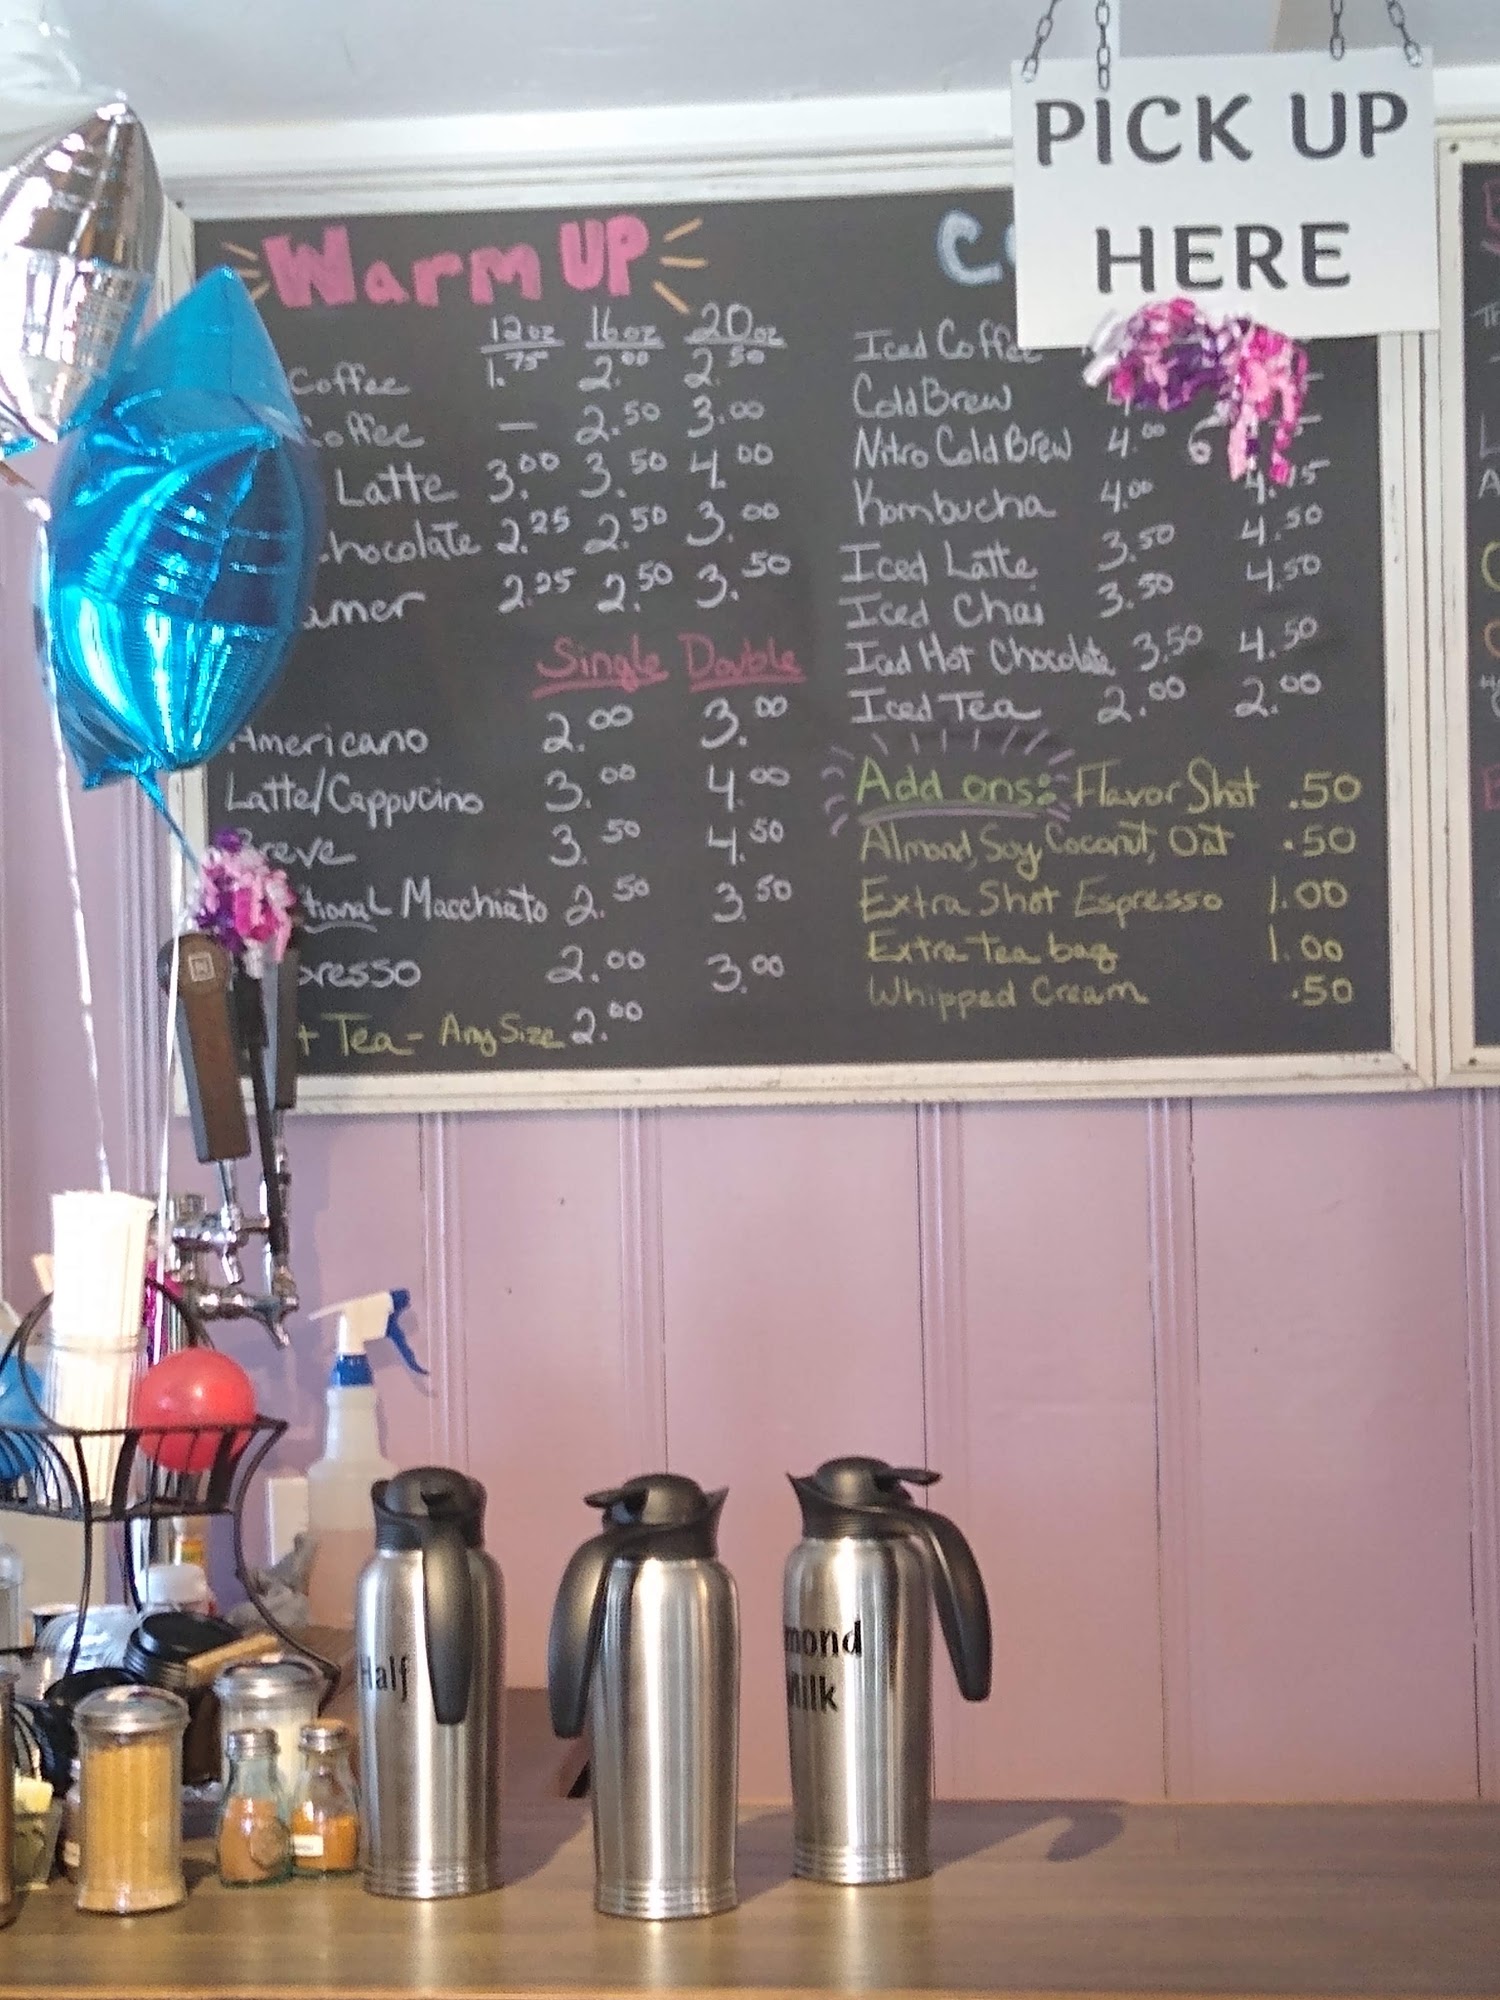 PICK UP
HERE
Warm UP
12oz 16oz 20oz
Coffee 1.75 2.00 2.50
Coffee — 2.50 3.00
Latte 3.00 3.50 4.00
Chocolate 2.25 2.50 3.00
amer 2.25 2.50 3.50
Single Double
Americano 2.00 3.00
Latte/Cappucino 3.00 4.00
Breve 3.50 4.50
tional Macchiato 2.50 3.50
presso 2.00 3.00
t Tea - Any Size 2.00
Iced Coffee
Cold Brew
Nitro Cold Brew 4.00
Kombucha 4.00
Iced Latte 3.50 4.50
Iced Chai 3.50 4.50
Iced Hot Chocolate 3.50 4.50
Iced Tea 2.00 2.00
Add ons: Flavor Shot .50
Almond, Soy, Coconut, Oat .50
Extra Shot Espresso 1.00
Extra Tea bag 1.00
Whipped Cream .50
Half
mond
Milk